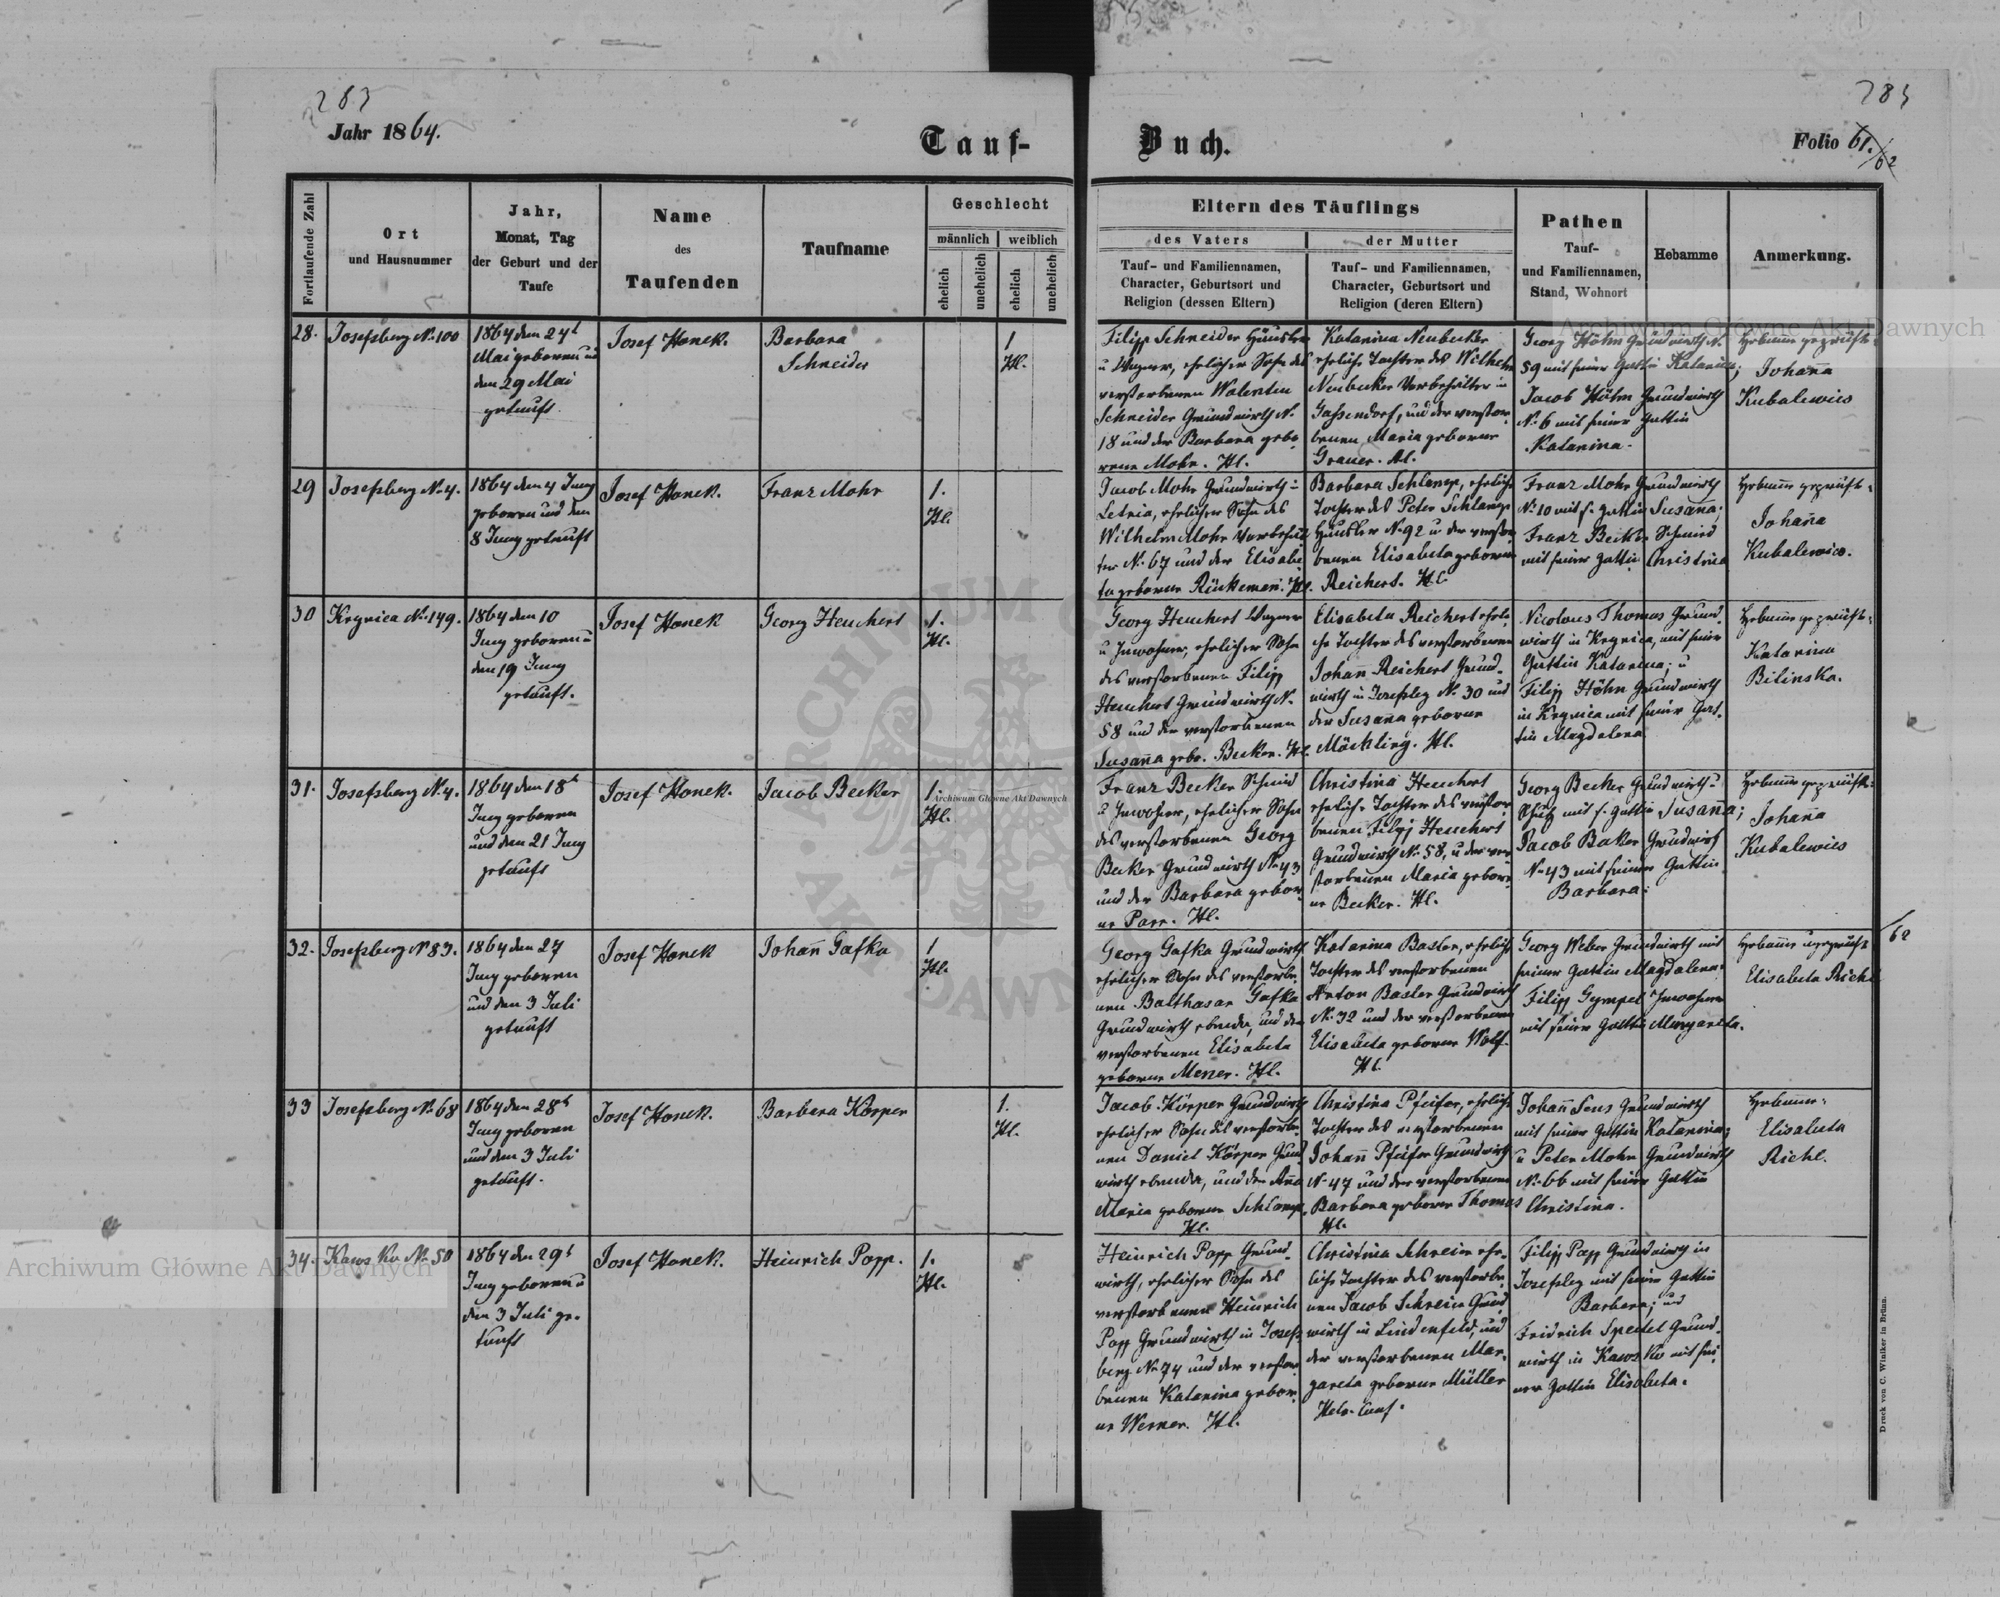 283
285
Jahr 1864.
Tauf-
Buch.
Folio 61./62
Fortlaufende Zahl
Ort
und Hausnummer
Jahr,
Monat, Tag
der Geburt und der
Taufe
Name
des
Taufenden
Taufname
Geschlecht
männlich
weiblich
ehelich
unehelich
ehelich
unehelich
Eltern des Täuflings
des Vaters
der Mutter
Tauf- und Familiennamen,
Character, Geburtsort und
Religion (dessen Eltern)
Tauf- und Familiennamen,
Character, Geburtsort und
Religion (deren Eltern)
Pathen
Tauf-
und Familiennamen,
Stand, Wohnort
Hebamme
Anmerkung.
28.
Josefsberg No. 100
1864 den 24t
Mai geboren u
den 29 Mai
getauft
Josef Hanek.
Barbara
Schneider
1
Hl.
Filipp Schneider Häusler
u Wagner, ehelicher Sohn des
verstorbenen Walentin
Schneider Grundwirth No.
18 und der Barbara gebo-
rene Mohr. Hl.
Katarina Neubecker
eheliche Tochter des Wilhelm
Neubecker Vorbehälter in
Gassendorf, und der verstor-
benen Maria geborne
Grauer. Hl.
Georg Höhn Grundwirth No.
59 mit seiner Gattin Katarina;
Jacob Höhn Grundwirth
No. 6 mit seiner Gattin
Katarina.
Hebamme geprüfte:
Johana
Kubalewics
29
Josefsberg No. 4.
1864 den 4 Juny
geboren und den
8 Juny getauft
Josef Hanek.
Franz Mohr
1.
Hl.
Jacob Mohr Grundwirth in
Letnia, ehelicher Sohn des
Wilhelm Mohr Vorbehäl-
ter No. 67 und der Elisabe-
ta geborne Rückeman. Hl.
Barbara Schlamp, eheliche
Tochter des Peter Schlamp
Häusler No. 92 u der verstor-
benen Elisabeta geborne
Reichert. Hl
Franz Mohr Grundwirth
No. 10 mit s. Gattin Susana;
Franz Becker Schmied
mit seiner Gattin Christina
Hebamme geprüfte:
Johana
Kubalewics.
30
Krynica No. 149.
1864 den 10
Juny geboren u
den 19 Juny
getauft.
Josef Hanek
Georg Heuchert
1.
Hl.
Georg Heuchert Wagner
u Inwohner, ehelicher Sohn
des verstorbenen Filipp
Heuchert Grundwirth No.
58 und der verstorbenen
Susana geb. Becker. Hl.
Elisabeta Reichert eheli-
che Tochter des verstorbenen
Johann Reichert Grund-
wirth in Josefsbeg No. 30 und
der Susana geborne
Mächling. Hl.
Nicolaus Thomas Grund-
wirth in Krynica, mit seiner
Gattin Katarina; u
Filipp Höhn Grundwirth
in Krynica mit seiner Gat-
tin Magdalena
Hebamme geprüfte:
Katarina
Bilinska.
31.
Josefsberg No. 4.
1864 den 18t
Juny geboren
und den 21 Juny
getauft
Josef Hanek.
Jacob Becker
1.
Hl.
Franz Becker Schmied
u Inwohner, ehelicher Sohn
des verstorbenen Georg
Becker Grundwirth No. 43
und der Barbara gebor-
ne Parr. Hl.
Christina Heuchert
eheliche Tochter des verstor-
benen Filipp Heuchert
Grundwirth No. 58, u der ver-
storbenen Maria gebor-
ne Becker. Hl.
Georg Becker Grundwirth u
mit s. Gattin Susanna;
Jacob Becker Grundwirth
No. 43 mit seiner Gattin
Barbara.
Hebamme geprüfte:
Johana
Kubalewics
32.
Josefsberg No. 83.
1864 den 27
Juny geboren
und den 3 Juli
getauft
Josef Hanek
Johann Gafka
1
Hl.
Georg Gafka Grundwirth
ehelicher Sohn des verstorbe-
nen Balthasar Gafka
Grundwirth ebenda, und der
verstorbenen Elisabeta
geborne Mener. Hl.
Katarina Basler, eheliche
Tochter des verstorbenen
Anton Basler Grundwirth
No. 32 und der verstorbenen
Elisabeta geborne Wolf.
Hl.
Georg Weber Grundwirth mit
seiner Gattin Magdalena;
Filipp Gympel Inwohner
mit seiner Gattin Margareta.
Hebamme ungeprüft
Elisabeta Richl
62
33
Josefsberg No. 68
1864 den 28t
Juny geboren
und den 3 Juli
getauft.
Josef Hanek.
Barbara Körper
1.
Hl.
Jacob Körper Grundwirth
ehelicher Sohn des verstorbe-
nen Daniel Körper Grund-
wirth ebenda, und der Anna
Maria geborne Schlamp.
Hl.
Christina Pfeifer, eheliche
Tochter des verstorbenen
Johann Pfeifer Grundwirth
No. 47 und der verstorbenen
Barbara geborne Thomas
Hl.
Johann Sens Grundwirth
mit seiner Gattin Katarina;
u Peter Mohr Grundwirth
No. 66 mit seiner Gattin
Christina.
Hebamme:
Elisabeta
Richl.
34.
Kawsko No. 50
1864 den 29t
Juny geboren u
den 3 Juli ge-
tauft
Josef Hanek.
Heinrich Papp.
1.
Hl.
Heinrich Papp Grund-
wirth, ehelicher Sohn des
verstorbenen Heinrich
Papp Grundwirth in Josefs-
berg No. 74 und der verstor-
benen Katarina gebor-
ne Werner. Hl.
Christina Schreier ehe-
liche Tochter des verstorbe-
nen Jacob Schreier Grund-
wirth in Lindenfeld, und
der verstorbenen Mar-
gareta geborne Müller
Helv. Conf.
Filipp Papp Grundwirth in
Josefsbeg mit seiner Gattin
Barbara; und
Fridrich Speitel Grund-
wirth in Kawsko mit sei-
ner Gattin Elisabeta.
Druck von C. Winiker in Brünn.
Archiwum Główne Akt Dawnych
Archiwum Główne Akt Dawnych
Archiwum Główne Akt Dawnych